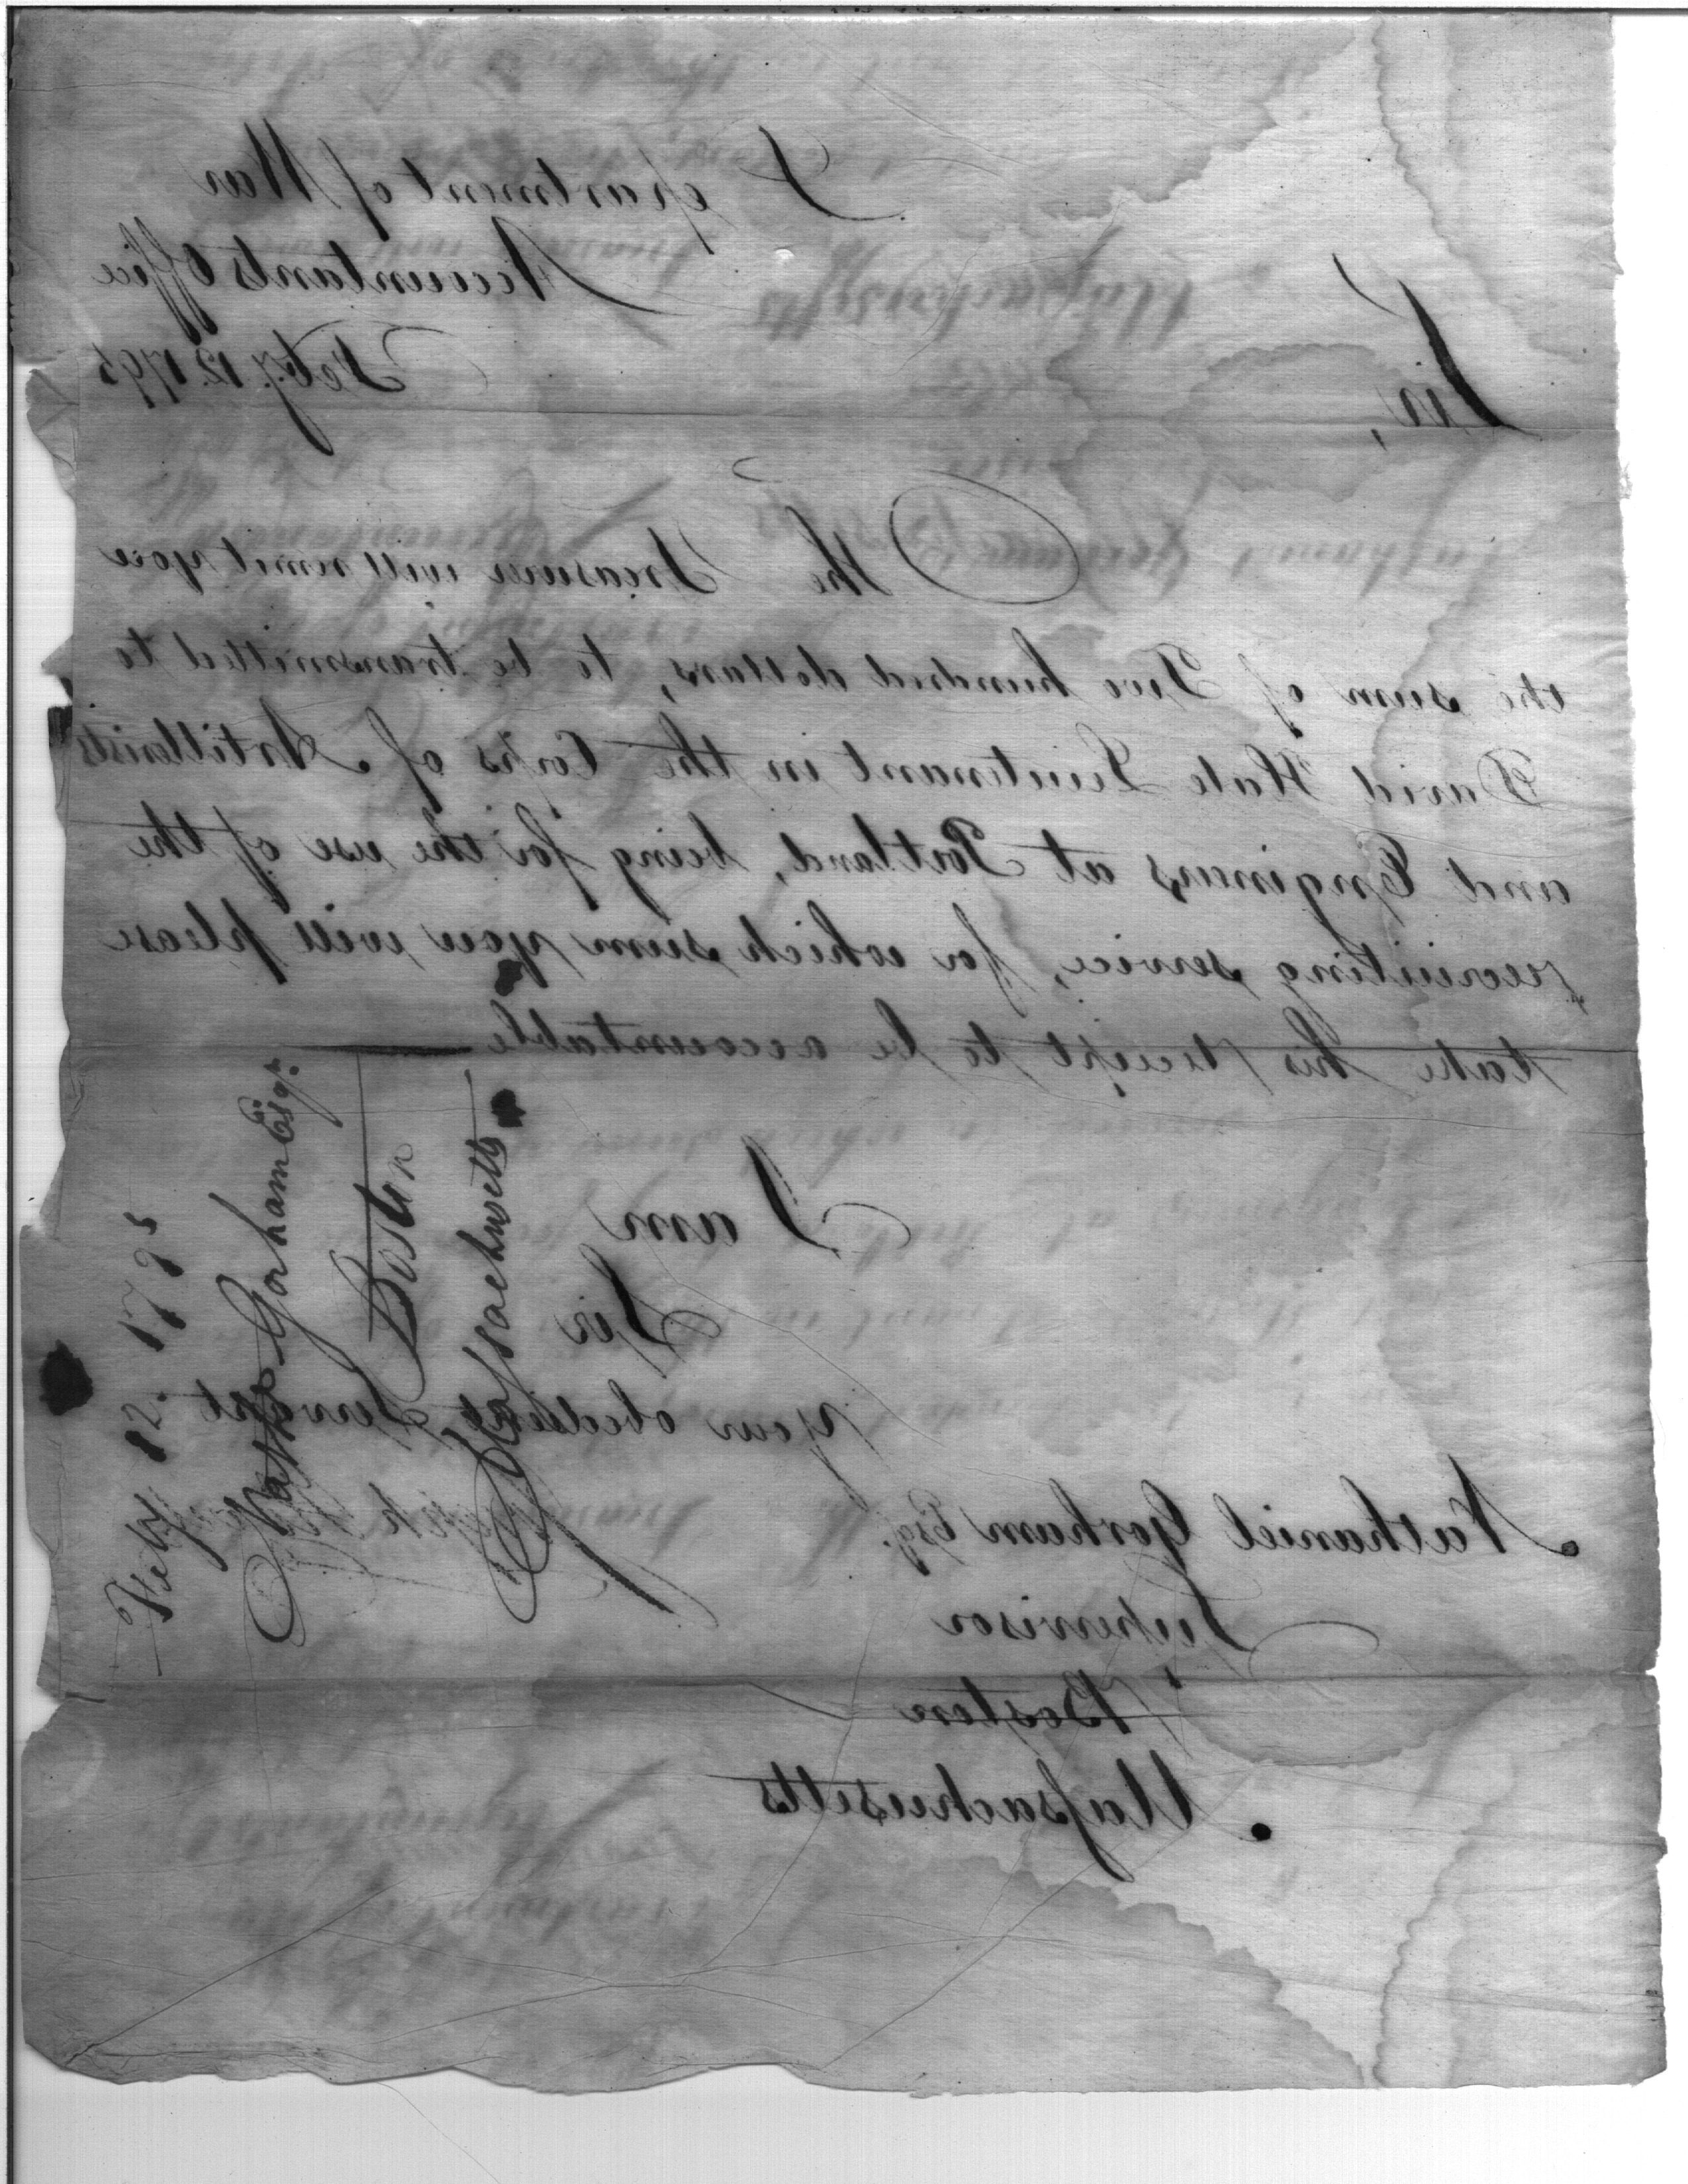 Department of War
Accountants Office
Feby. 12. 1795
Sir,
The Treasurer will remit you
the sum of Two hundred dollars, to be transmitted to
David Hale Lieutenant in the Corps of Artillerists
and Engineers at Portland, being for the use of the
recruiting service, for which sum you will please
take his receipt to be accountable
I am
Sir
Your obedient Servant
Nathaniel Gorham Esqr.
Supervisor
Boston
Massachusetts
Feby 12. 1795
Gorham Esqr.
Boston
Massachusetts